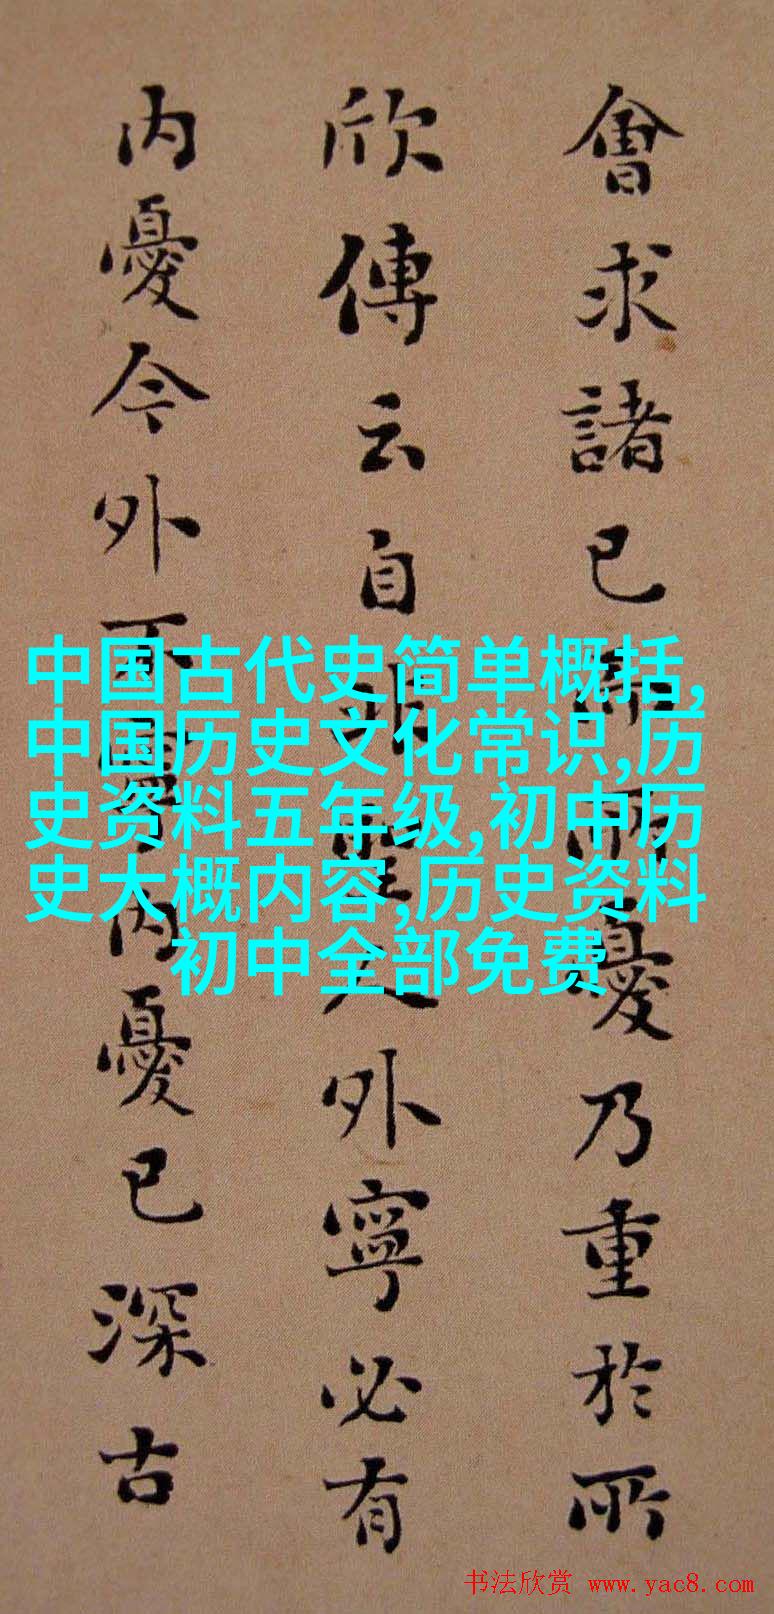 會求諸己而所憂乃重於所
欣傳云自非聖人外寧必有
内憂今外不寧内憂已深古
中国古代史简单概括,
中国历史文化常识,历
史资料五年级,初中历
史大概内容,历史资料
初中全部免费
书法欣赏 www.yac8.com